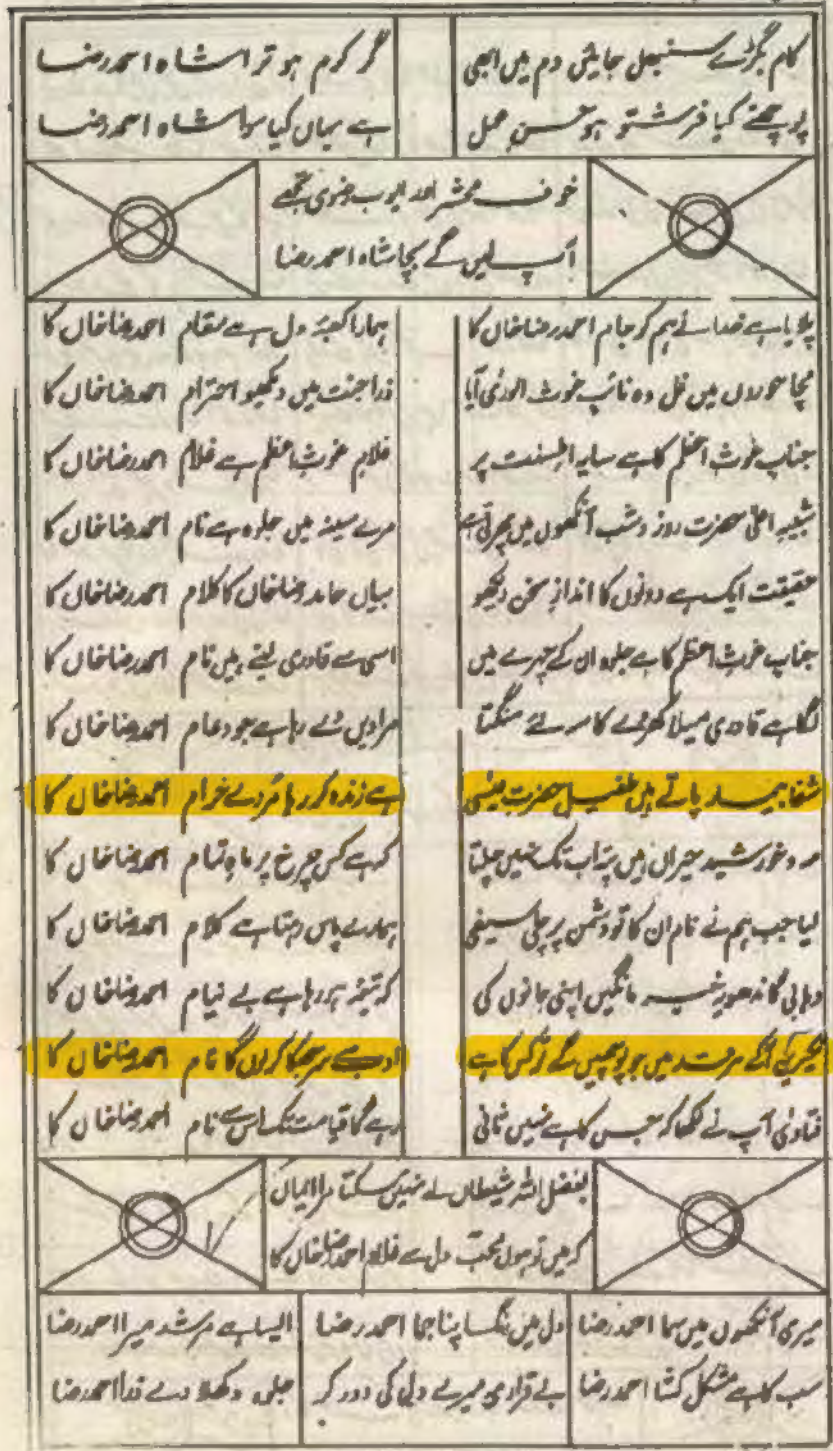 کام بگڑے سنبھل جائیں دم میں ابھی گر کرم ہو ترا شاہ احمد رضا
پوچھتے کیا فرشتو ہو حسن عمل ہے یہاں کیا سوا شاہ احمد رضا
خوف محشر اور ایوب رضوی تجھے
آپ لیں گے بچا شاہ احمد رضا
پلایا ہے خدا نے ہم کو جام احمد رضا خاں کا ہمارا کعبۂ دل ہے مقام احمد رضا خاں کا
مچا حوروں میں غل وہ نائب غوث الورٰی آیا ذرا جنت میں دیکھو احترام احمد رضا خاں کا
جناب غوث اعظم کا ہے سایہ اہلسنت پر غلام غوث اعظم ہے غلام احمد رضا خاں کا
شبیہ اعلیٰ حضرت روز و شب آنکھوں میں پھرتی ہے مرے سینہ میں جلوہ ہے نام احمد رضا خاں کا
حقیقت ایک ہے دونوں کا انداز سخن دیکھو بیاں حامد رضا خاں کا کلام احمد رضا خاں کا
جناب غوث اعظم کا ہے جلوہ ان کے چہرے میں اسی سے قادری لیتے ہیں نام احمد رضا خاں کا
لگا ہے قادری میلا کھڑے کا مرلئے منگتا مرادیں دے رہا ہے جود عام احمد رضا خاں کا
شفا بیمار پاتے ہیں طفیل حضرت عیسیٰ ہے زندہ کر رہا مردے خرام احمد رضا خاں کا
مہ و خورشید حیراں ہیں پتہ اب تک نہیں چلتا کہ ہے کس چرخ پر ماہ تمام احمد رضا خاں کا
لیا جب ہم نے نام ان کا تو دشمن پر چلی سیفی ہمارے پاس رہتا ہے کلام احمد رضا خاں کا
وہابی گاندھویہ خیر مانگیں اپنی جانوں کی کہ تیغہ ہو رہا ہے بے نیام احمد رضا خاں کا
نکیرین آکے مرقد میں جو پوچھیں گے تو کس کا ہے ادب سے سر جھکا کر لوں گا نام احمد رضا خاں کا
فتاوٰی آپ نے لکھا کہ جس کا ہے نہیں ثانی رہے گا قیامت تک اس سے نام احمد رضا خاں کا
بفضل اللہ شیطاں لے نہیں سکتا مرا ایماں
کہ میں تو ہوں محب دل سے غلام احمد رضا خاں کا
میری آنکھوں میں سما احمد رضا دل میں نگ اپنا جما احمد رضا ایسا ہے مرشد میرا احمد رضا
سب کا ہے مشکل کشا احمد رضا بے قراری میرے دل کی دور کر جلی دکھلا دے ذرا احمد رضا